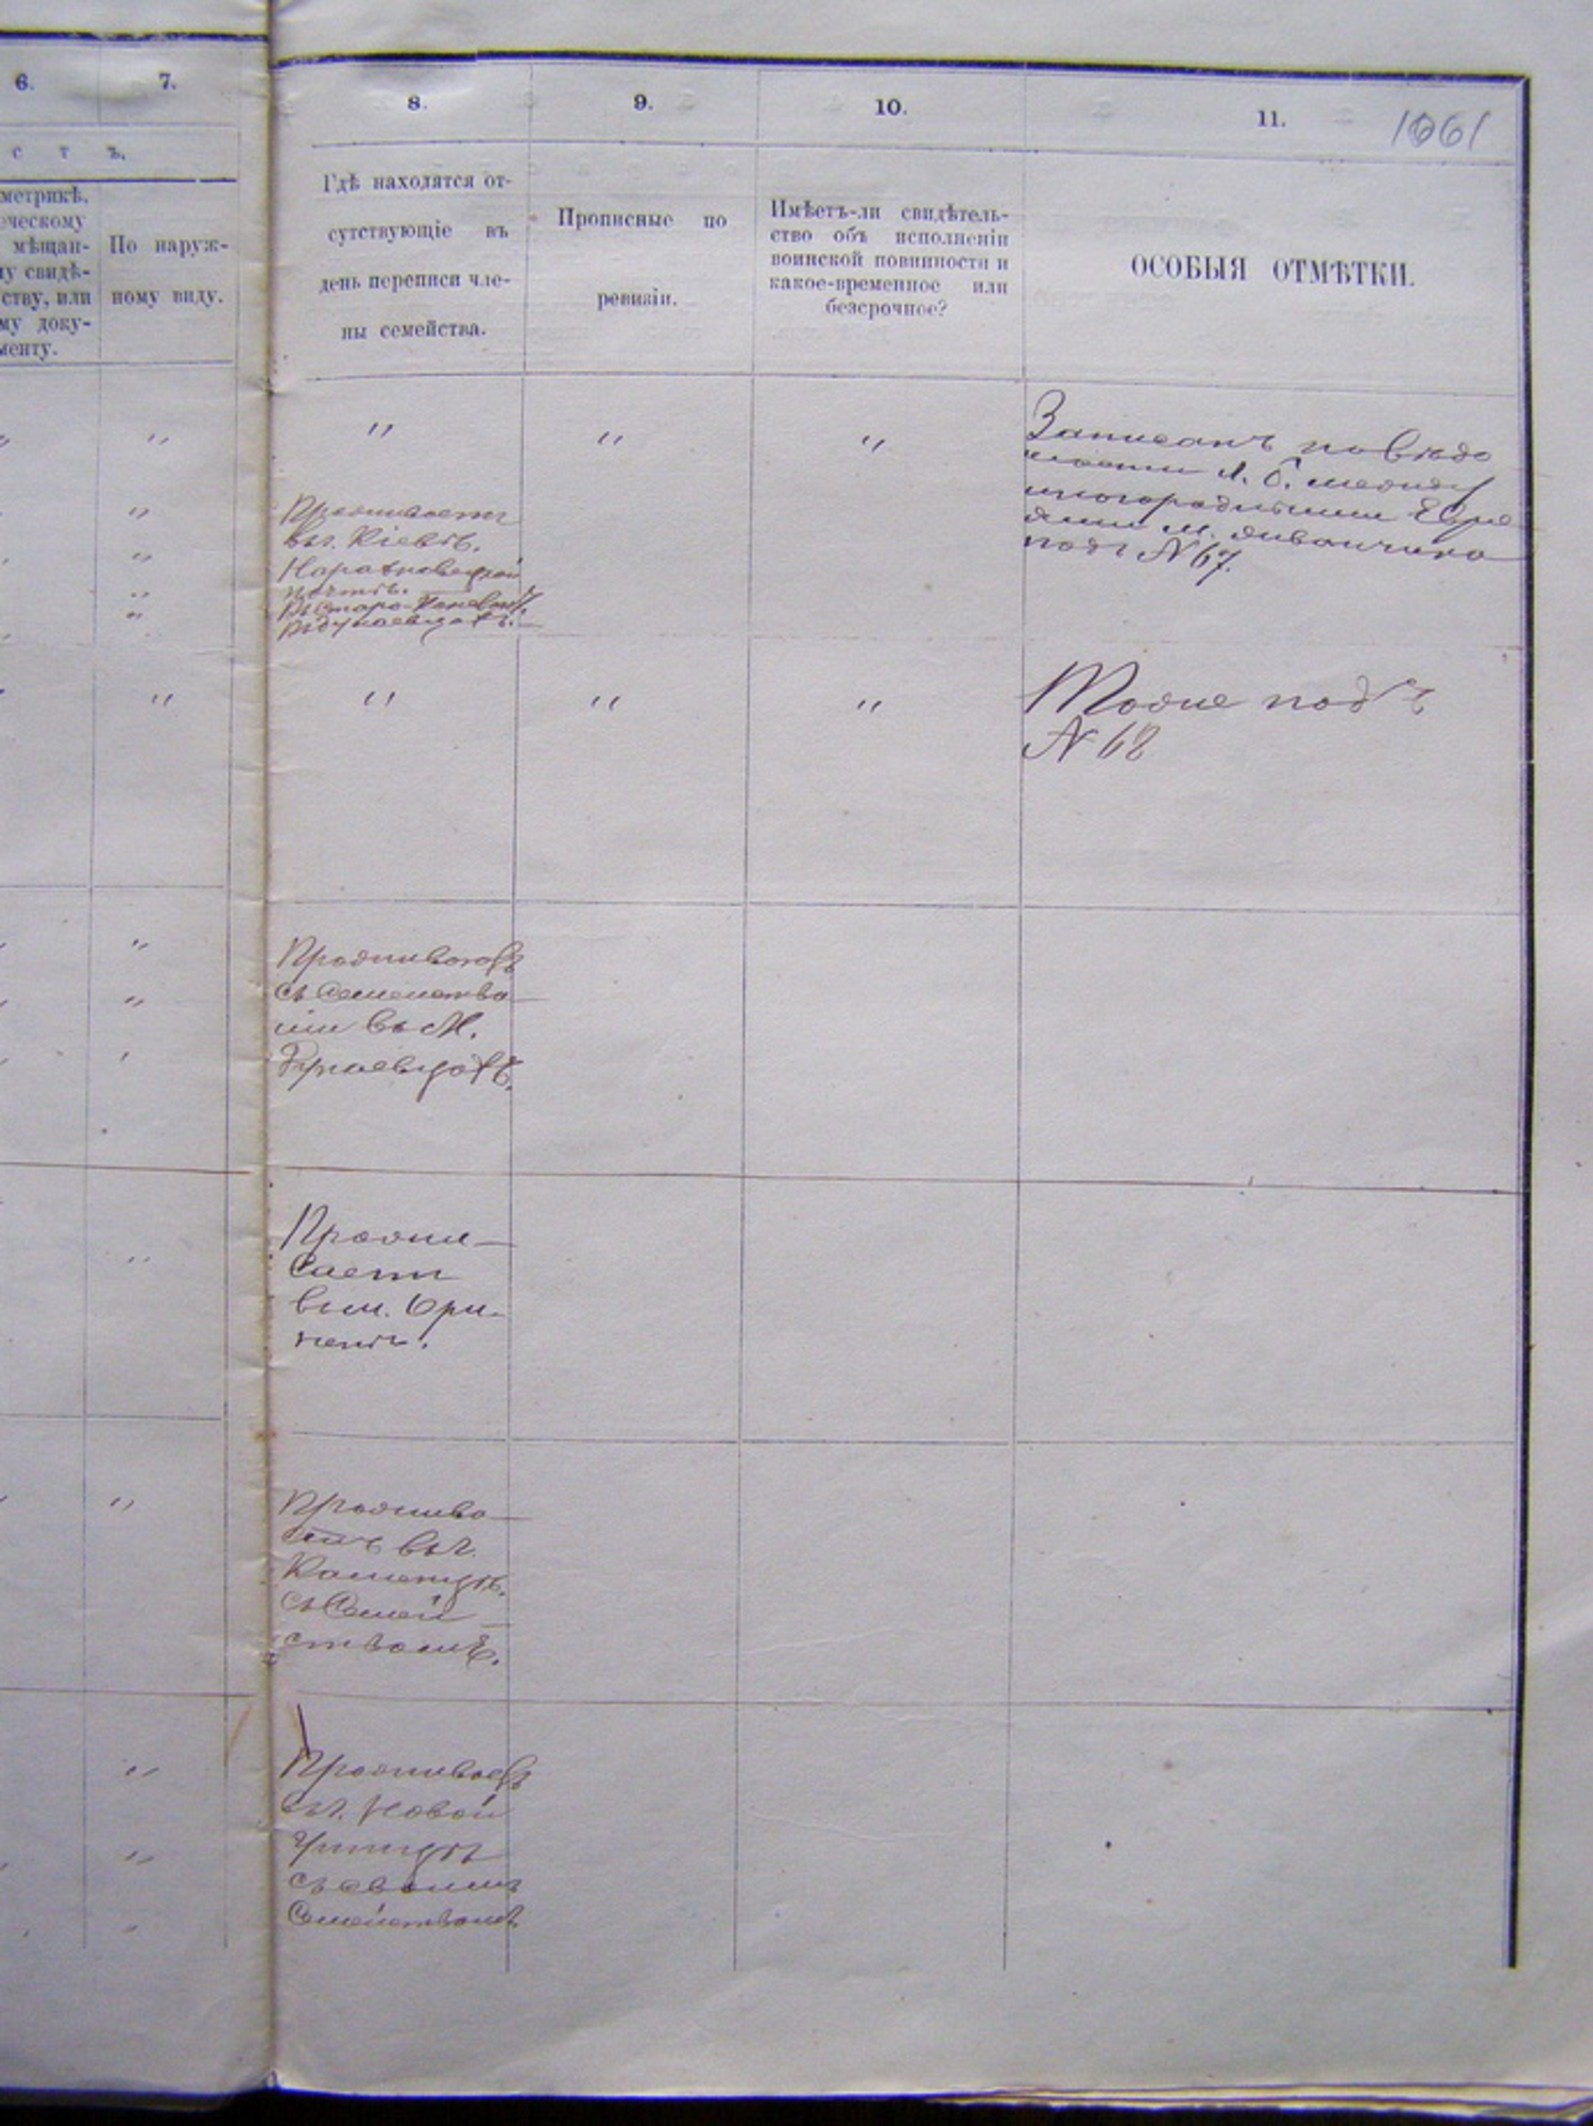 6.
7.
8.
9.
10.
11.
1061
с т ъ.
метрикѣ,
еческому
мѣщан-
у свидѣ-
ству, или
му доку-
менту.
По наруж-
ному виду.
Гдѣ находятся от-
сутствующіе въ
день переписи чле-
ны семейства.
Прописные по
ревизіи.
Имѣетъ-ли свидѣтель-
ство объ исполненіи
воинской повинности и
какое-временное или
безсрочное?
ОСОБЫЯ ОТМѢТКИ.
" " " " "
Записанъ по вѣдо
мости
иногородными Евре
ями м.
подъ N 67.
Проживаетъ
въ г. Кіевѣ.
почтѣ.
въ Дунаевцахъ.
" " " "
Тоже подъ
N 68
Проживаютъ
съ Семейства
ми въ М.
Дунаевцахъ.
Прожи-
ваетъ
въ м. Ори-
нинѣ.
Прожива-
етъ въ г.
Каменцѣ.
съ Семей
ствомъ.
Проживаетъ
въ г. Новой
Ушицѣ
съ своимъ
Семействомъ